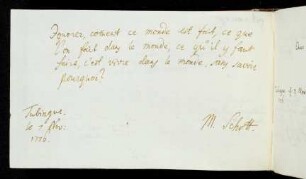 Ignorer, coment ce monde est fait, ce que
l'on fait dans le monde, ce qu'il y faut
faire, c'est vivre dans le monde, sans savoir
pourquoi?
Tubingue.
le 7
1776.
M. Schott.